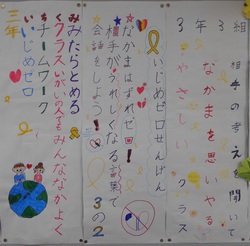 3年3組
相手の考えを聞いて
なかまを思いやる
やさしいクラス
いじめゼロせんげん
なかまはずれゼロ!
相手がうれしくなる言葉で
会話をしよう! 3の2
みたらとめる
クラスいがいの人ともみんななかよく
チームワーク
いじめゼロ
三年